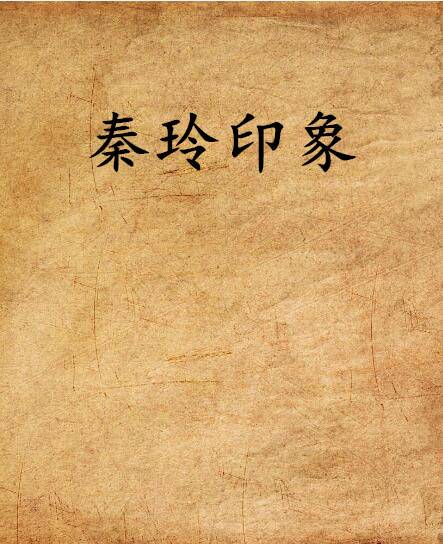 秦玲印象